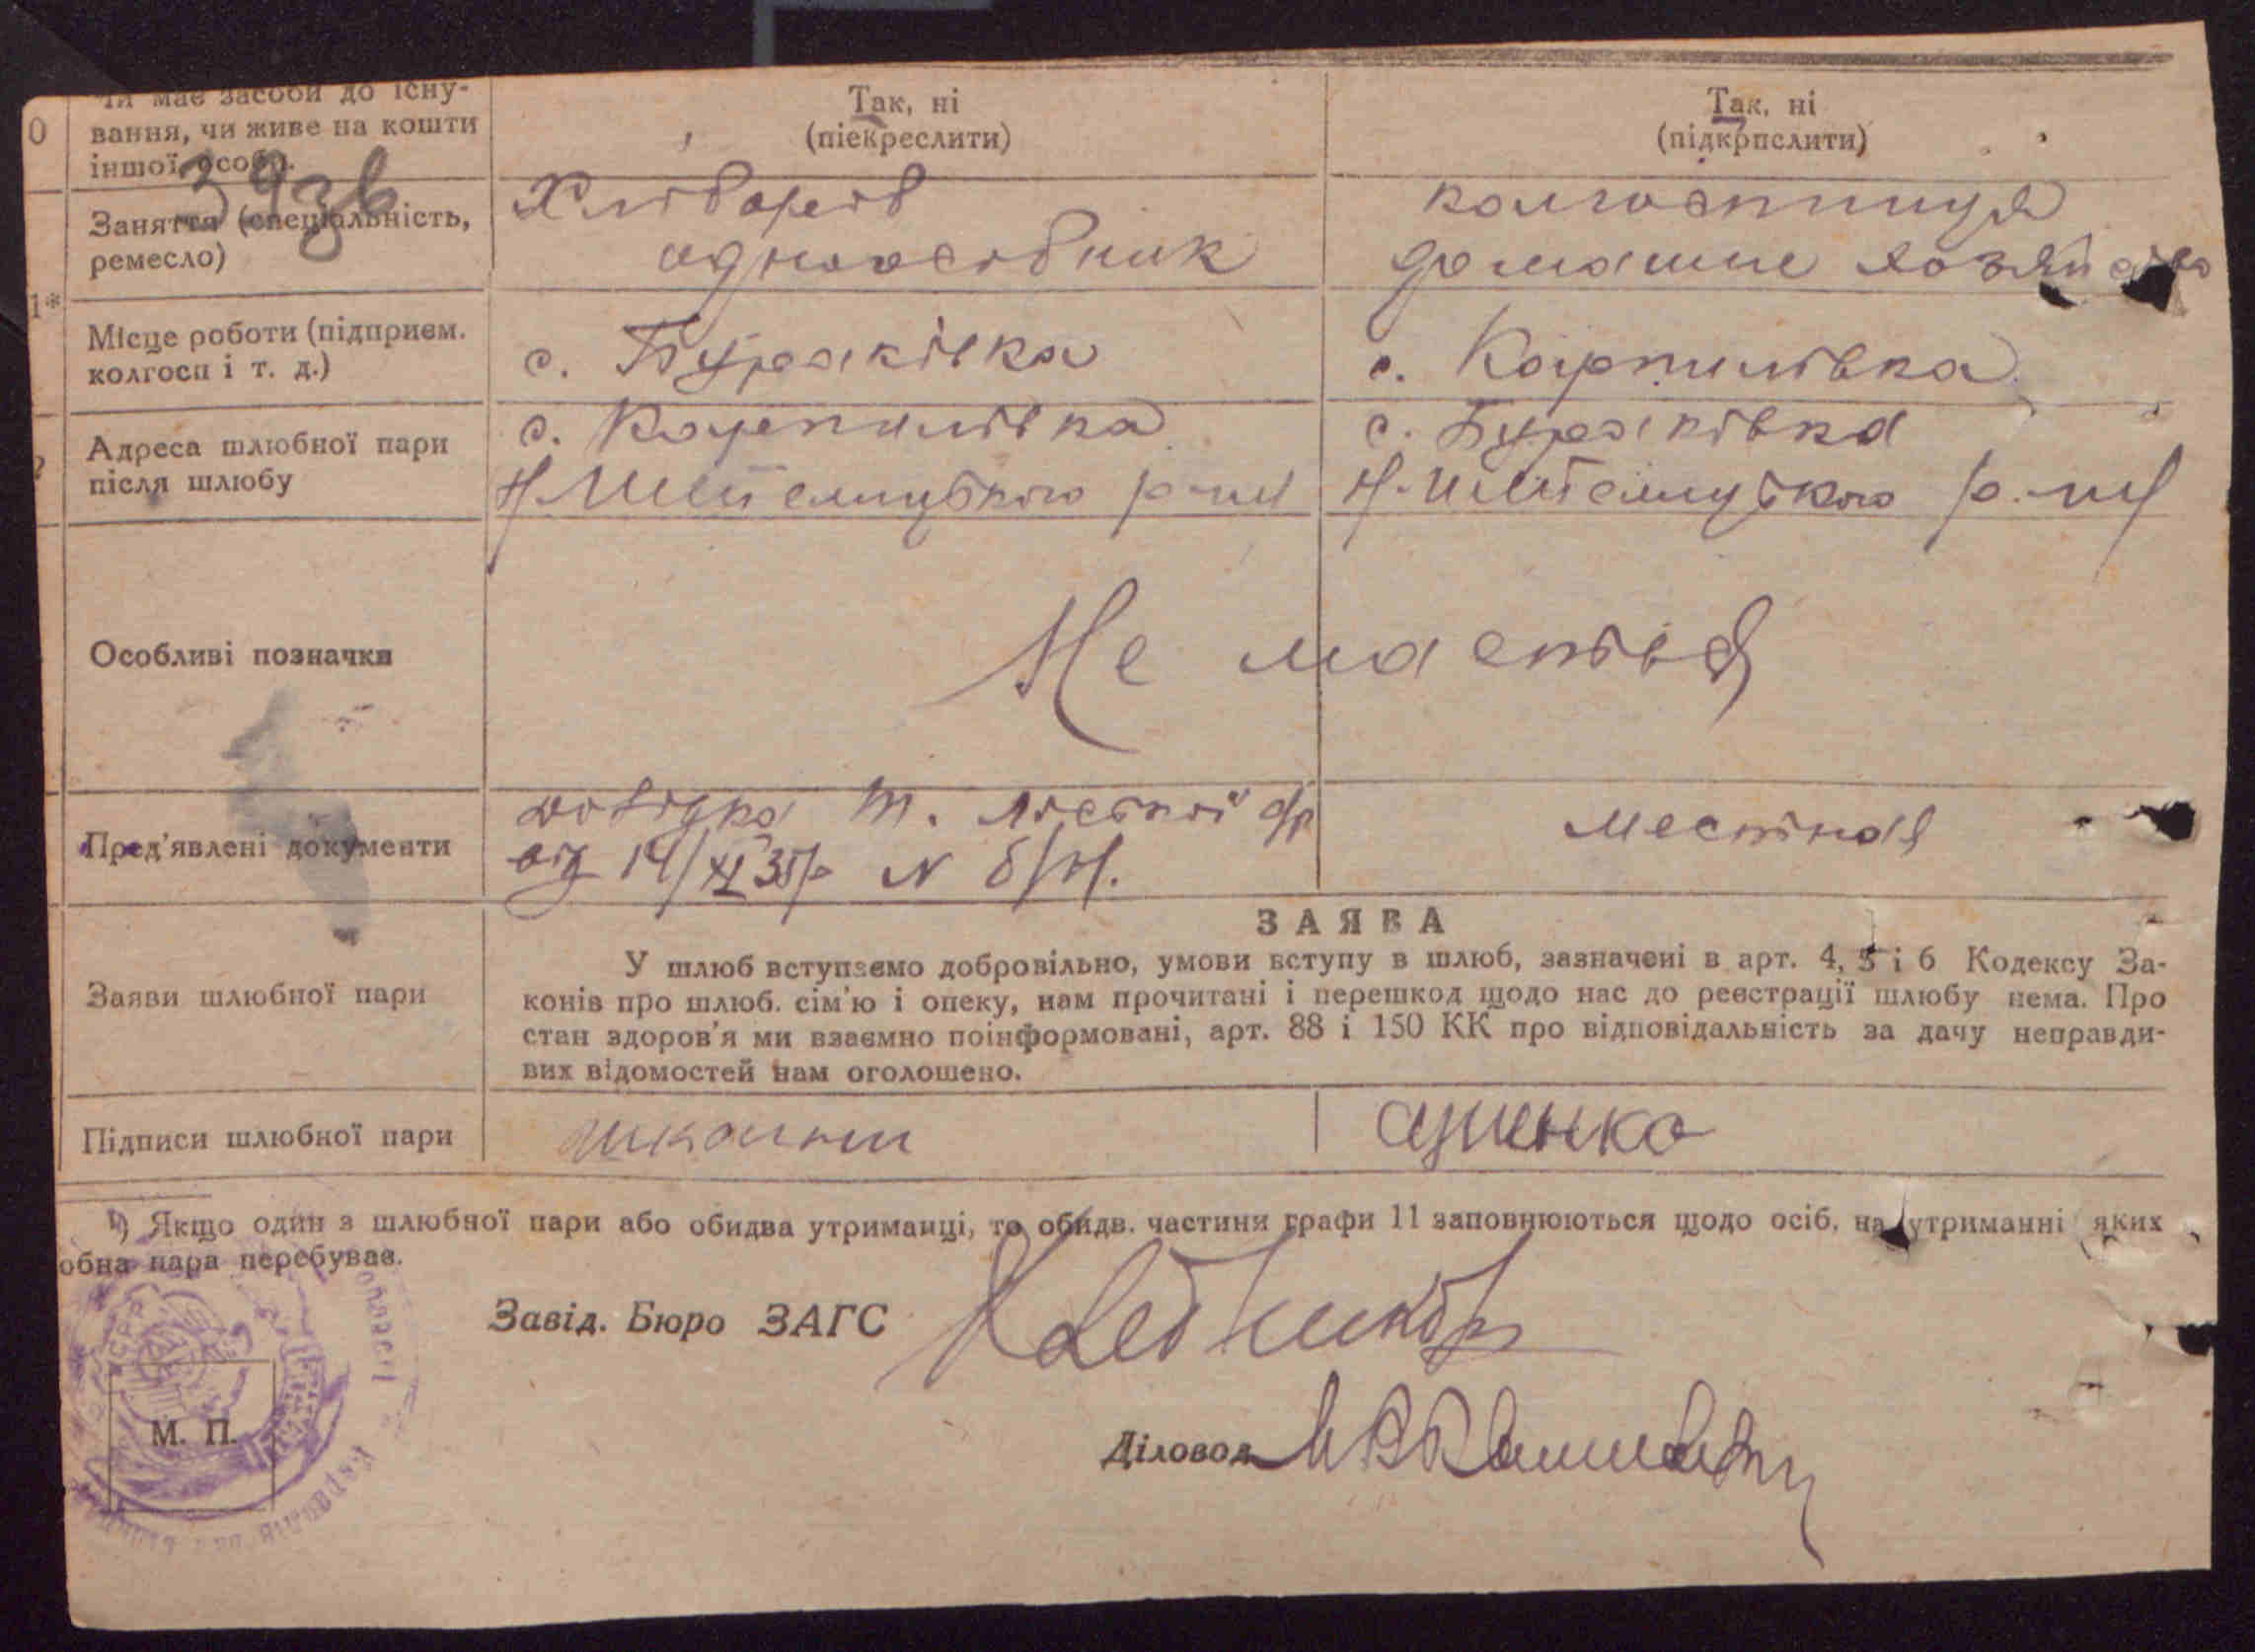 Чи має засоби до існу-
вання, чи живе на кошти
іншої особи.
Так, ні
(піекреслити)
Так, ні
(підкрпслити)
39зв
Заняття (спеціальність,
ремесло)
Хлібороб
одноосібник
колгоспниця
домашнє хозяйство
1*
Місце роботи (підприєм.
колгосп і т. д.)
с. Бураківка
с. Карпилівка
Адреса шлюбної пари
після шлюбу
с. Карпилівка
Н. Шепелицького р-ну
с. Бураківка
Н. Шепелицького р-ну
Особливі позначки
Не має
Пред'явлені документи
довідка с/р
від 14/XI 35 р N б/н.
местная
Заяви шлюбної пари
ЗАЯВА
У шлюб вступаємо добровільно, умови вступу в шлюб, зазначені в арт. 4, 5 і 6 Кодексу За-
конів про шлюб. сім'ю і опеку, нам прочитані і перешкод щодо нас до реєстрації шлюбу нема. Про
стан здоров'я ми взаємно поінформовані, арт. 88 і 150 КК про відповідальність за дачу неправди-
вих відомостей нам оголошено.
Підписи шлюбної пари
¹) Якщо один з шлюбної пари або обидва утриманці, то обидв. частини графи 11 заповнюються щодо осіб, на утриманні яких
обна пара перебуває.
Завід. Бюро ЗАГС
Діловод
М. П.